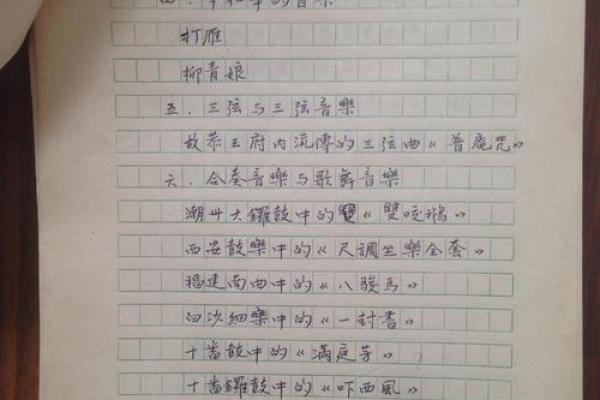 的音樂
打雁
柳青娘
五、三弦与三弦音樂
故恭王府内流傳的三弦曲《普庵咒》
六、合奏音樂与歌舞音樂
潮州大鑼鼓中的《雙咬鵝》
西安鼓樂中的《尺調坐樂全套》
福建南曲中的《八骏马》
白沙細樂中的《一封書》
十番鼓中的《滿庭芳》
十番鑼鼓中的《吓西風》